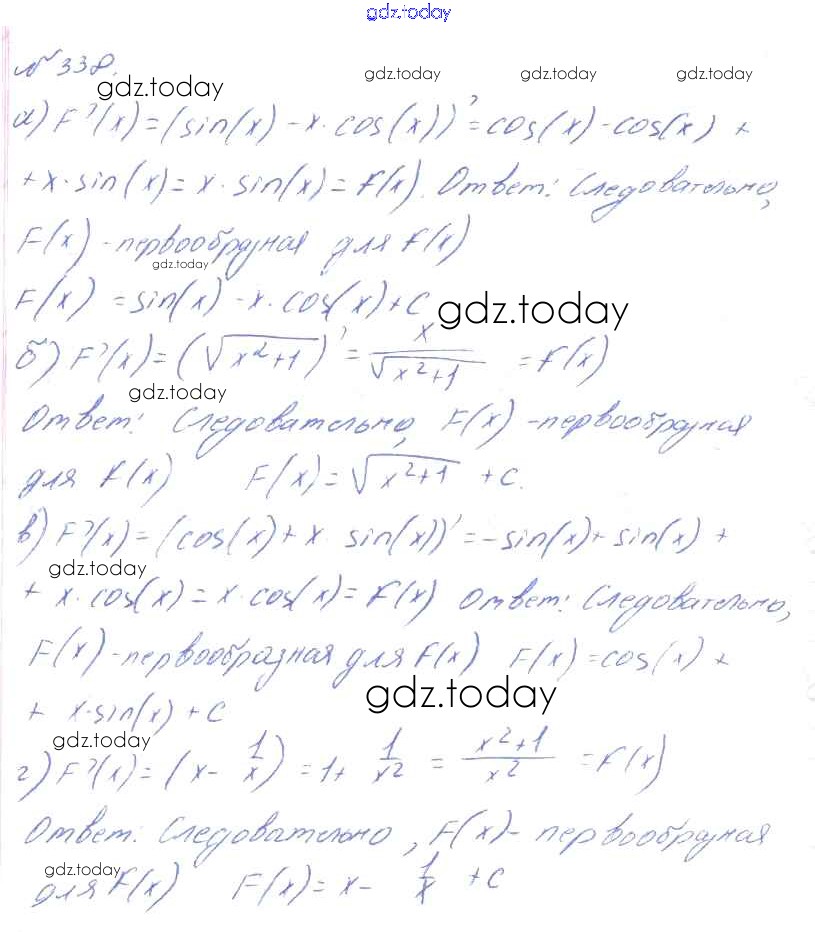 gdz.today
№ 338.
gdz.today gdz.today gdz.today gdz.today
а) F'(x) = (sin(x) - x · cos(x))' = cos(x) - cos(x) +
+ x · sin(x) = x · sin(x) = f(x). Ответ: Следовательно,
F(x) - первообразная для f(x)
gdz.today
F(x) = sin(x) - x · cos(x) + C
gdz.today
б) F'(x) = (√x²+1)' = x/√x²+1 = f(x)
gdz.today
Ответ: Следовательно, F(x) - первообразная
для f(x) F(x) = √x²+1 + C.
в) F'(x) = (cos(x) + x · sin(x))' = -sin(x) + sin(x) +
gdz.today
+ x · cos(x) = x · cos(x) = f(x) Ответ: Следовательно,
F(x) - первообразная для f(x) F(x) = cos(x) +
gdz.today
+ x · sin(x) + C
gdz.today
г) F'(x) = (x - 1/x) = 1 + 1/x² = x²+1/x² = f(x)
Ответ: Следовательно, F(x) - первообразная
gdz.today
для f(x) F(x) = x - 1/x + C